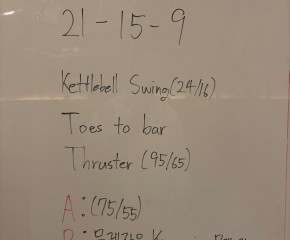 21-15-9
Kettlebell Swing(24/16)
Toes to bar
Thruster (95/65)
A:(75/55)